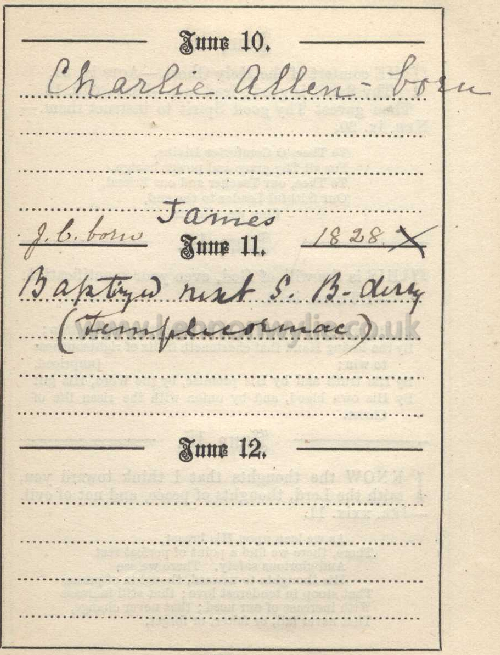 June 10.
Charlie Allen - born
James
J.C. born 1828. X
June 11.
Baptized next S. B-derry
(Templecormac)
June 12.